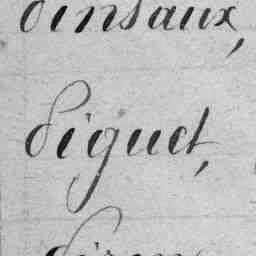 dinsaux,
diguet,